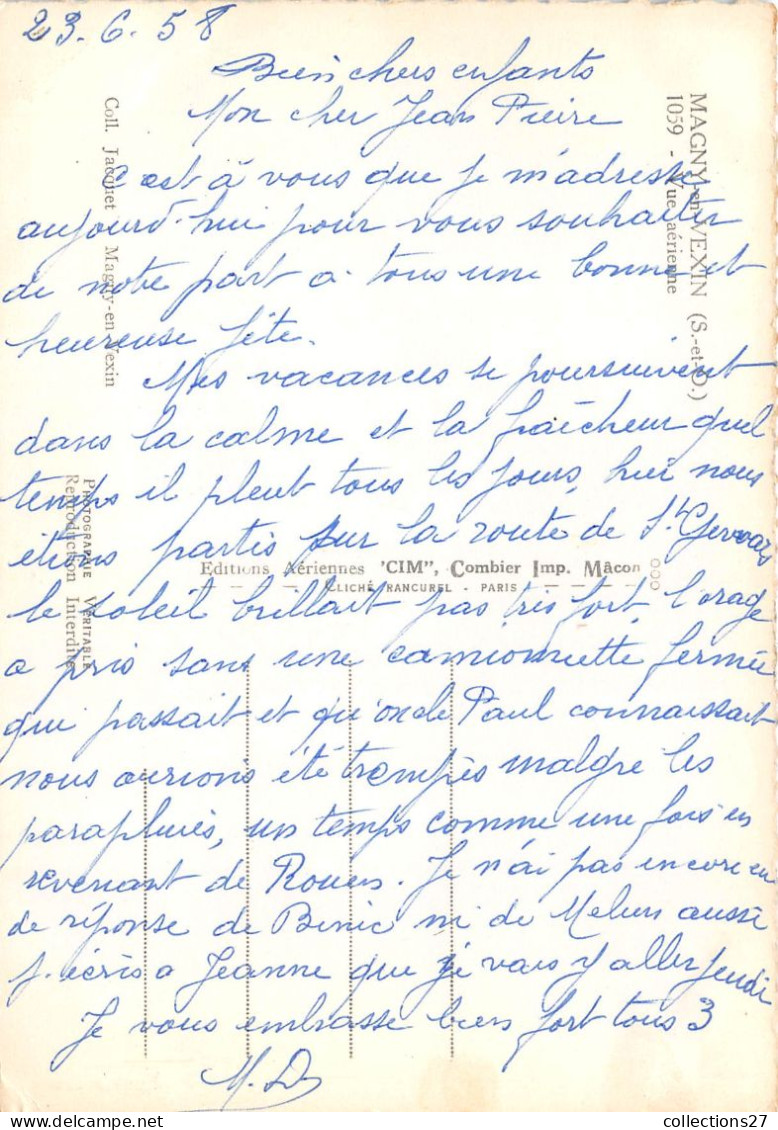 23.6.58
Bien chers enfants
Mon cher Jean Pierre
C'est à vous que je m'adresse
aujourd'hui pour vous souhaiter
de notre part a tous une bonne et
heureuse fête.
Mes vacances se poursuivent
dans la calme et la fraîcheur quel
temps il pleut tous les jours, hui nous
étions partis sur la route de St Gervais
le soleil brillait pas très fort, l'orage
a pris sans une camionnette fermée
qui passait et qu'oncle Paul connaissait
nous aurions été trempés malgre les
parapluies, un temps comme une fois en
revenant de Rouen. Je n'ai pas encore eu
de réponse de Binic ni de Melun aussi
j'écris a Jeanne que je vais y aller jeudi
Je vous embrasse bien fort tous 3
M.D
MAGNY-en-VEXIN (S.-et-O.)
1059 - Vue aérienne
Coll. Jacquet Magny-en-Vexin
PHOTOGRAPHIE VÉRITABLE
Reproduction Interdite
Editions Aériennes "CIM", Combier Imp. Mâcon
CLICHÉ RANCUREL - PARIS
collections27